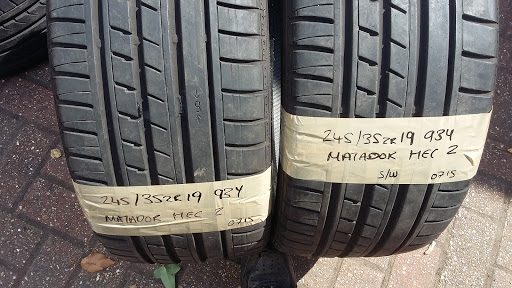 245/35ZR19 93Y
MATADOR HEC 2
0715
245/35ZR19 93Y
MATADOR HEC 2
S/W 0715